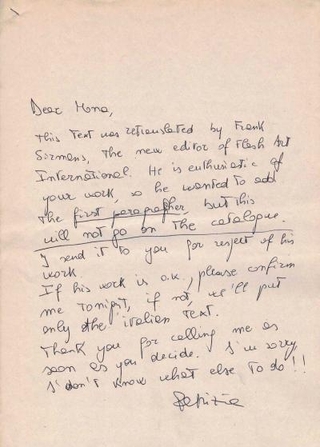 Dear Mona,
This Text was retranslated by Frank
Sirmans, The new editor of Flash Art
International. He is enthusiatic of
your work, so he wanted to add
The first paragrapher, but this
will not go on The catalogue.
I send it to you for respect of his
work
If his work is o.k., please confirm
me Tonight, if not, we'll put
only the italian Text.
Thank you for calling me as
soon as you decide. I'm sorry
I don't know what else To do!!